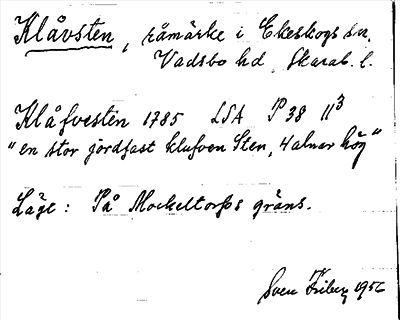 Klåvsten, råmärke i Ekeskogs sn,
Vadsbo hd, Skarab. l.
Klåfvesten 1785 LSA P 38 11³
"en stor jordfast klufven Sten, 4 alnar hög"
Läge: På Mockeltorps gräns.
Sven Friberg 1956